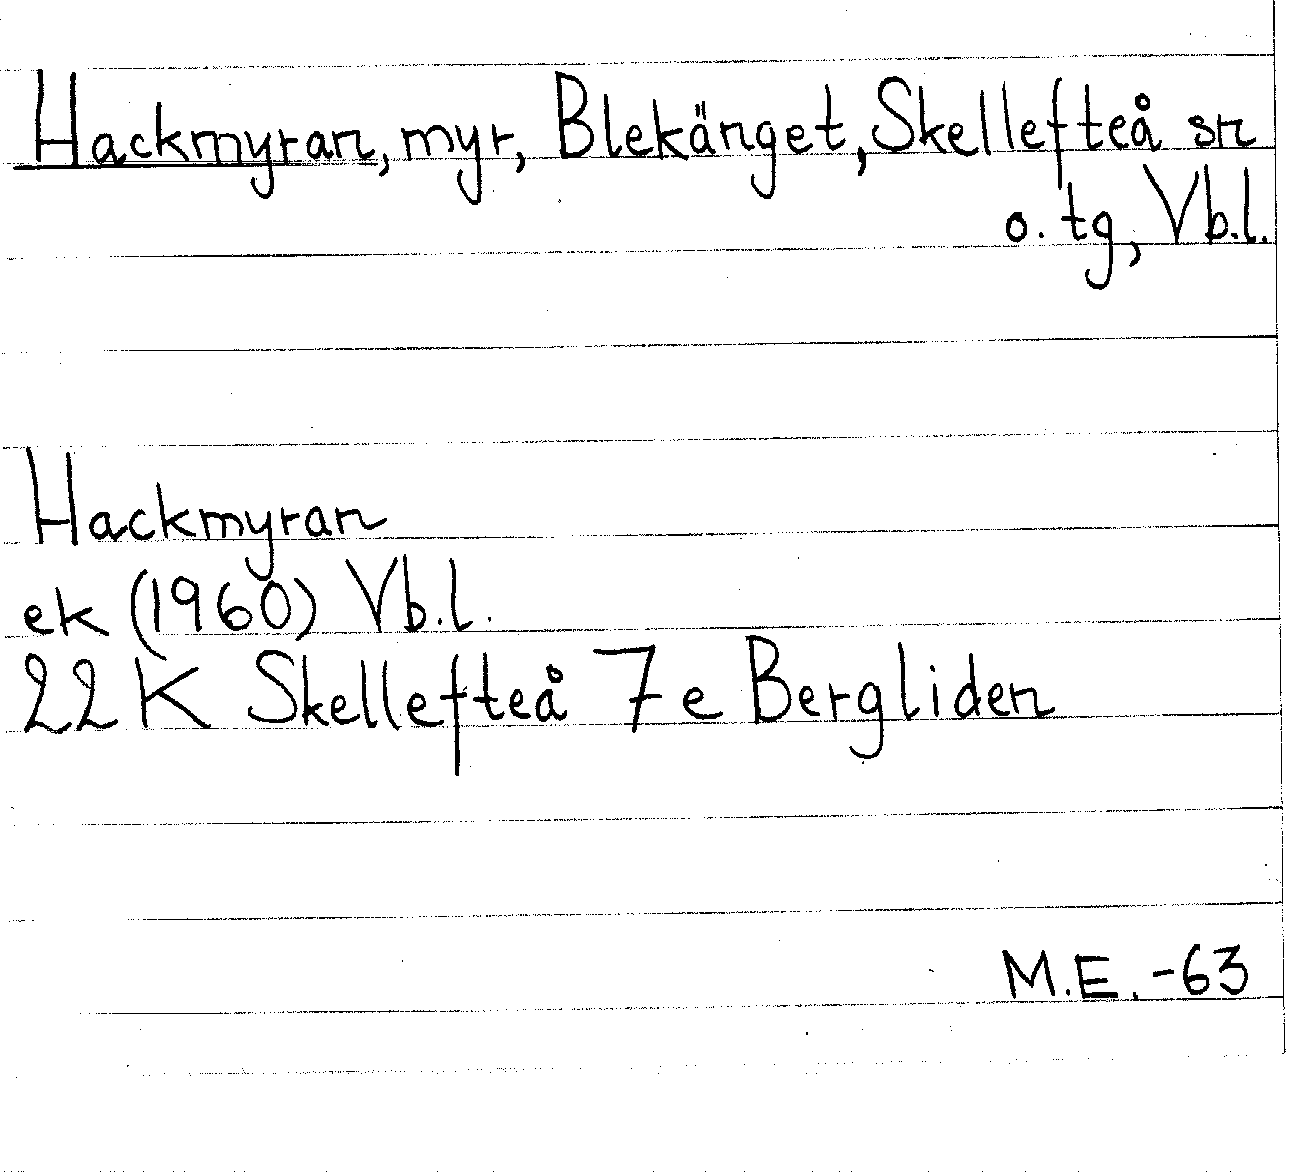 Hackmyran, myr, Blekänget, Skellefteå sn
o. tg, Vb.l.
Hackmyran
ek (1960) Vb.l.
22 K Skellefteå 7e Bergliden
M.E. -63